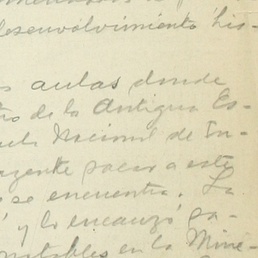 desenvolvimiento his-
aulas donde
de la Antigua Es-
Nacional de In-
sacar a este
se encuentra. La
y lo encauzó pa-
notables en la Mine-